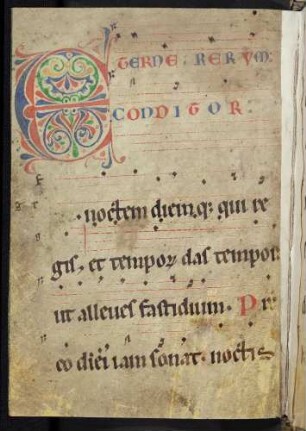 ETERNE RERVM
CONDITOR
noctem diemq; qui re
gis, et tempoꝝ das tempora
ut alleues fastidium. Pr
co diei iam sonat. noctis